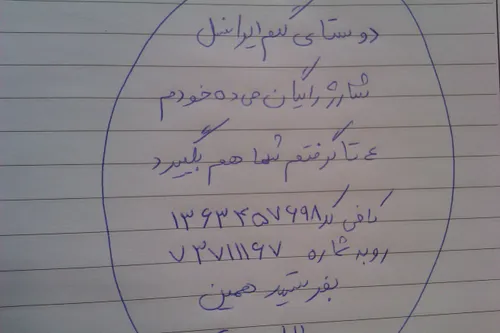 دوستای گلم ایرانسل
شارژ رایگان می ده خودم
۴ تا گرفتم شما هم بگیرد
کافی کد ۱۳۶۳۴۵۷۶۹۸
رو به شماره ۷۳۷۱۱۱۶۷
بفرستید همین